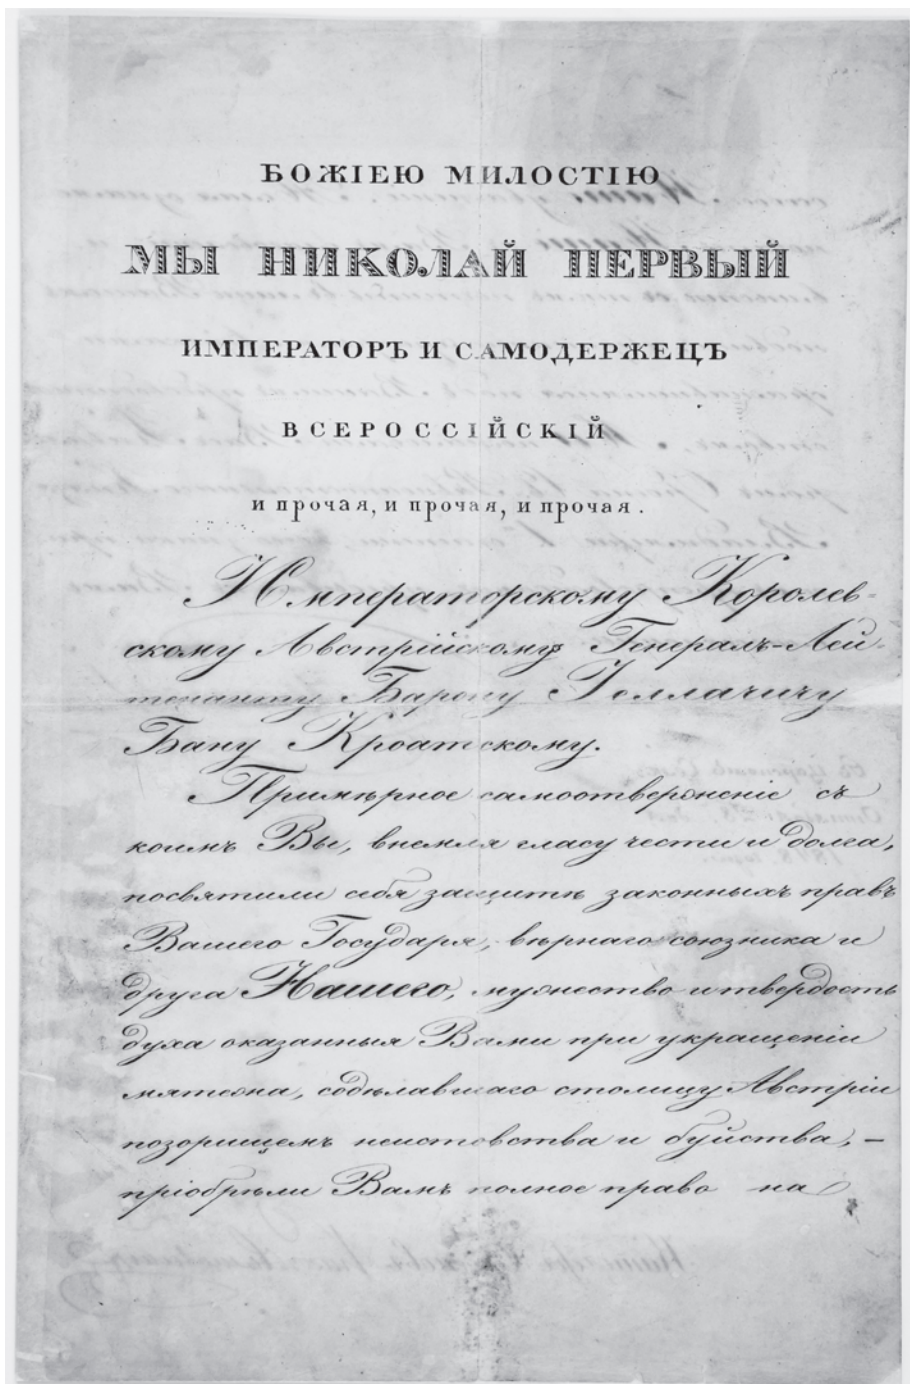 БОЖІЕЮ МИЛОСТІЮ
МЫ НИКОЛАЙ ПЕРВЫЙ
ИМПЕРАТОРЪ И САМОДЕРЖЕЦЪ
ВСЕРОССІЙСКІЙ
и прочая, и прочая, и прочая.
Императорскому Королев-
скому Австрійскому Генералъ-Лей-
тенанту Барону Іеллачичу
Бану Кроатскому.
Примѣрное самоотверженіе съ
коимъ Вы, внемля гласу чести и долга,
посвятили себя защитѣ законныхъ правъ
Вашего Государя, вѣрнаго союзника и
друга Нашего, мужество и твердость
духа оказанныя Вами при укращеніи
мятежа, содѣлавшаго столицу Австріи
позорищемъ неистовства и буйства, –
пріобрѣли Вамъ полное право на